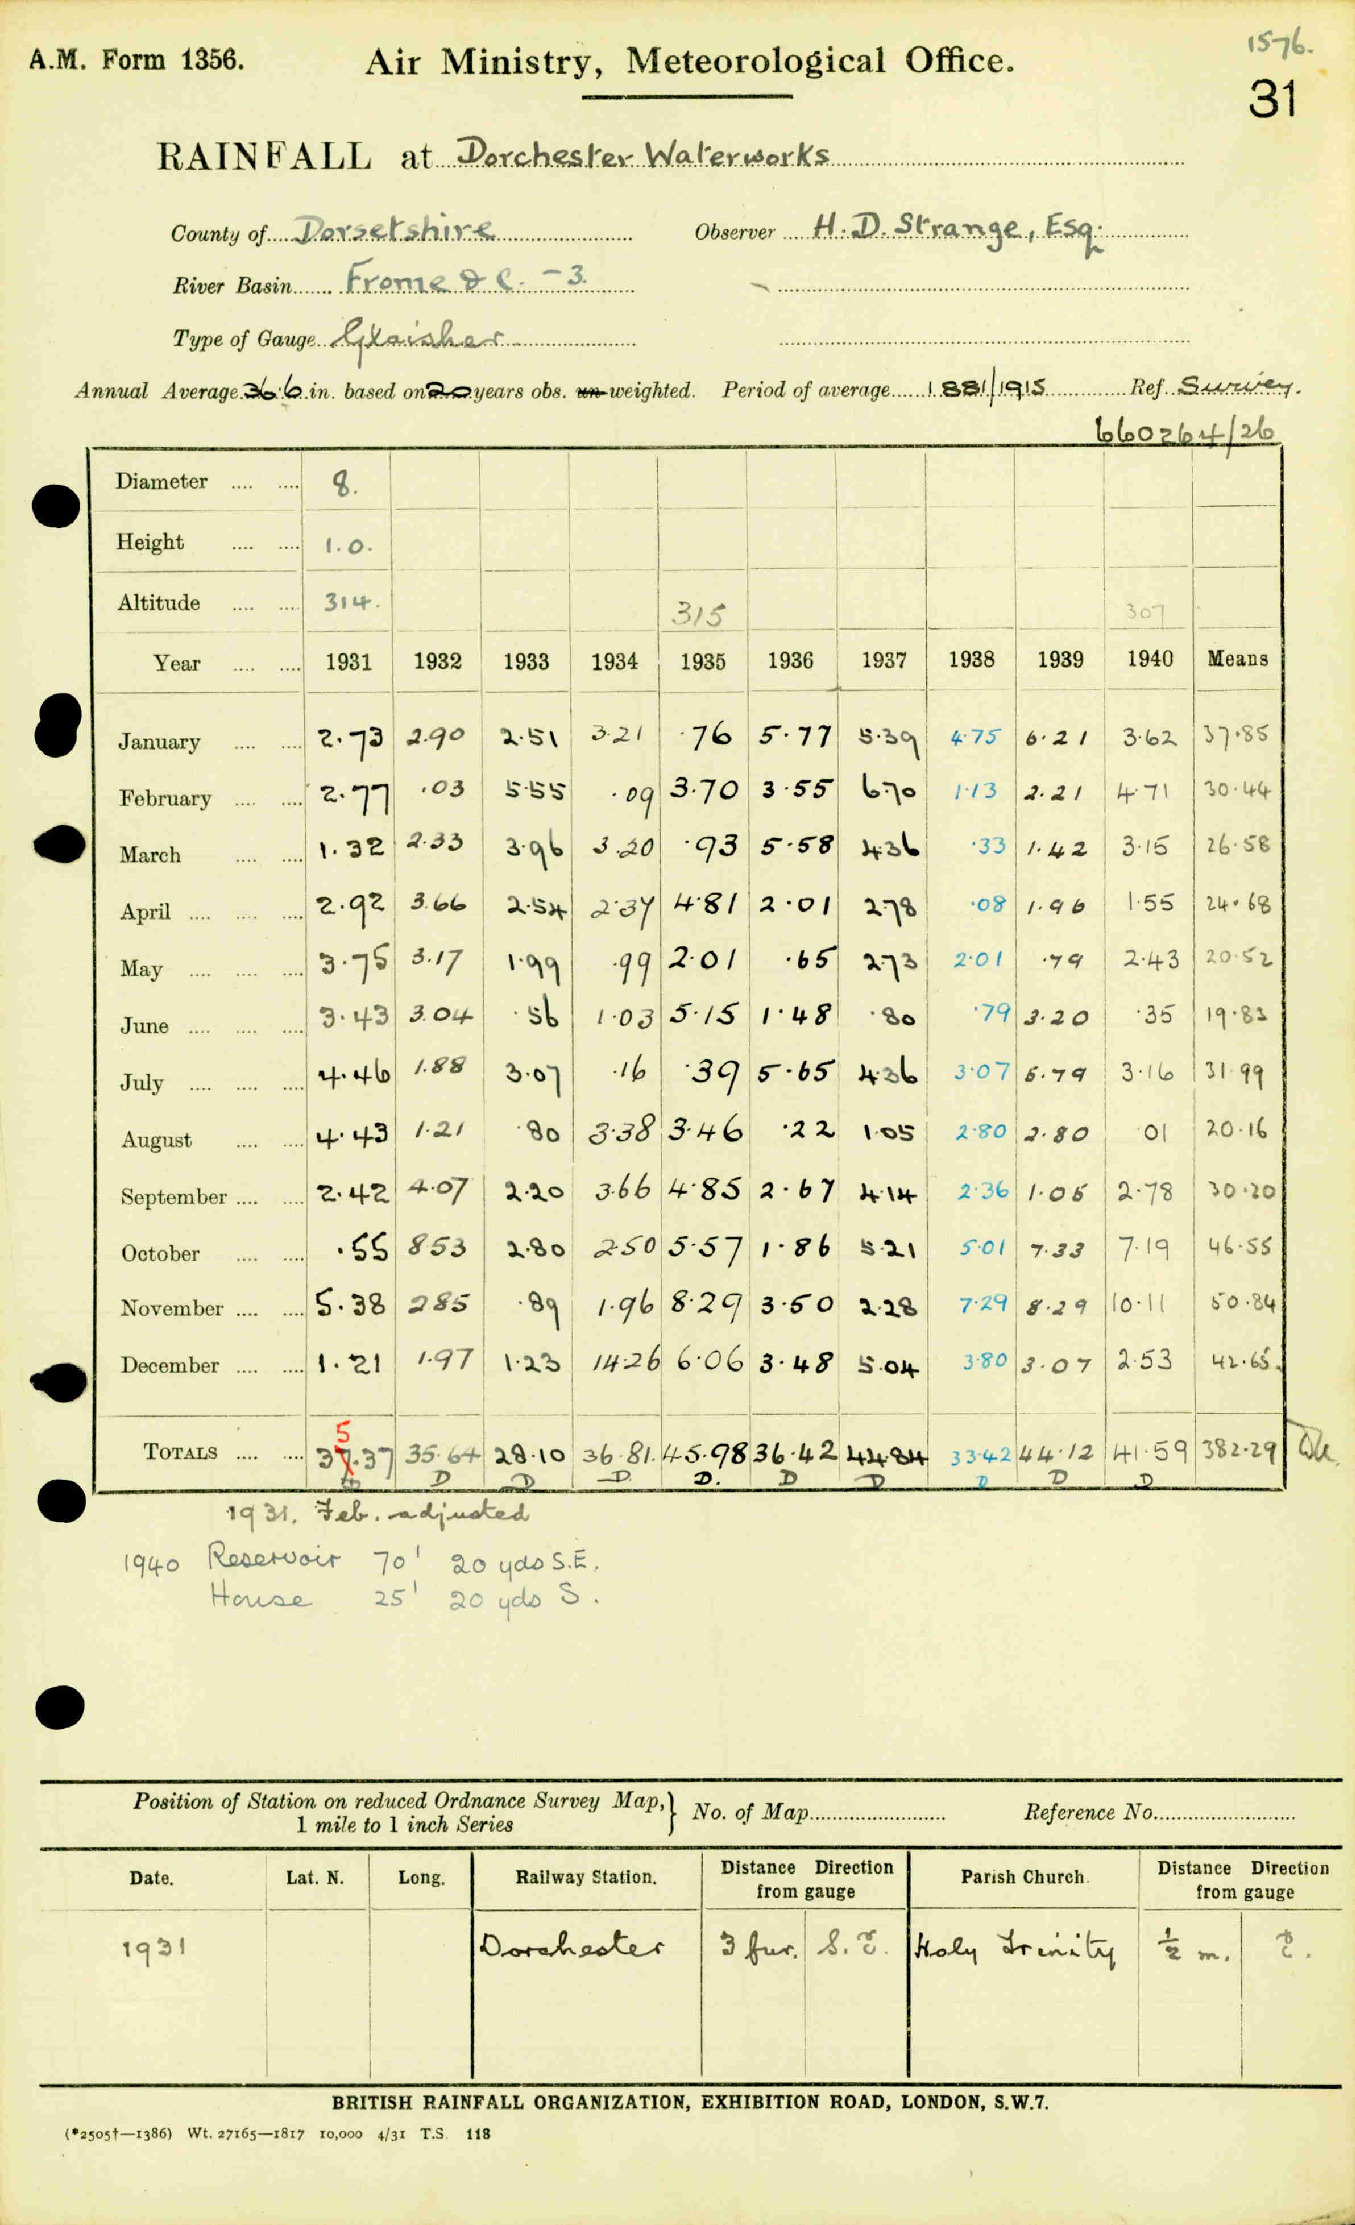 1576.
A.M. Form 1356. Air Ministry, Meteorological Office.
31
RAINFALL at Dorchester Waterworks
County of Dorsetshire Observer H. D. Strange, Esq.
River Basin Frome &c. -3.
Type of Gauge Glaisher
Annual Average 36.6 in. based on 20 years obs. un-weighted. Period of average 1881/1915 Ref. Survey.
660264/26
Diameter 8.
Height 1.0.
Altitude 314. 315 307
Year 1931 1932 1933 1934 1935 1936 1937 1938 1939 1940 Means
January 2.73 2.90 2.51 3.21 .76 5.77 5.39 4.75 6.21 3.62 37.85
February 2.77 .03 5.55 .09 3.70 3.55 6.70 1.13 2.21 4.71 30.44
March 1.32 2.33 3.96 3.20 .93 5.58 4.36 .33 1.42 3.15 26.58
April 2.92 3.66 2.54 2.37 4.81 2.01 2.78 .08 1.96 1.55 24.68
May 3.75 3.17 1.99 .99 2.01 .65 2.73 2.01 .79 2.43 20.52
June 3.43 3.04 .56 1.03 5.15 1.48 .80 .79 3.20 .35 19.83
July 4.46 1.88 3.07 .16 .39 5.65 4.36 3.07 5.79 3.16 31.99
August 4.43 1.21 .80 3.38 3.46 .22 1.05 2.80 2.80 01 20.16
September 2.42 4.07 2.20 3.66 4.85 2.67 4.14 2.36 1.05 2.78 30.20
October .55 8.53 2.80 2.50 5.57 1.86 5.21 5.01 7.33 7.19 46.55
November 5.38 2.85 .89 1.96 8.29 3.50 2.28 7.29 8.29 10.11 50.84
December 1.21 1.97 1.23 14.26 6.06 3.48 5.04 3.80 3.07 2.53 42.65
5
TOTALS 37.37 35.64 28.10 36.81 45.98 36.42 44.84 33.42 44.12 41.59 382.29
D D D D. D D D D D
1931. Feb. adjusted
1940 Reservoir 70' 20 yds S.E.
House 25' 20 yds S.
Position of Station on reduced Ordnance Survey Map, 1 mile to 1 inch Series No. of Map Reference No.
Date. Lat. N. Long. Railway Station. Distance Direction from gauge Parish Church. Distance Direction from gauge
1931 Dorchester 3 fur. S.E. Holy Trinity ½ m. E.
BRITISH RAINFALL ORGANIZATION, EXHIBITION ROAD, LONDON, S.W.7.
(*2505†—1386) Wt. 27165—1817 10,000 4/31 T.S. 118